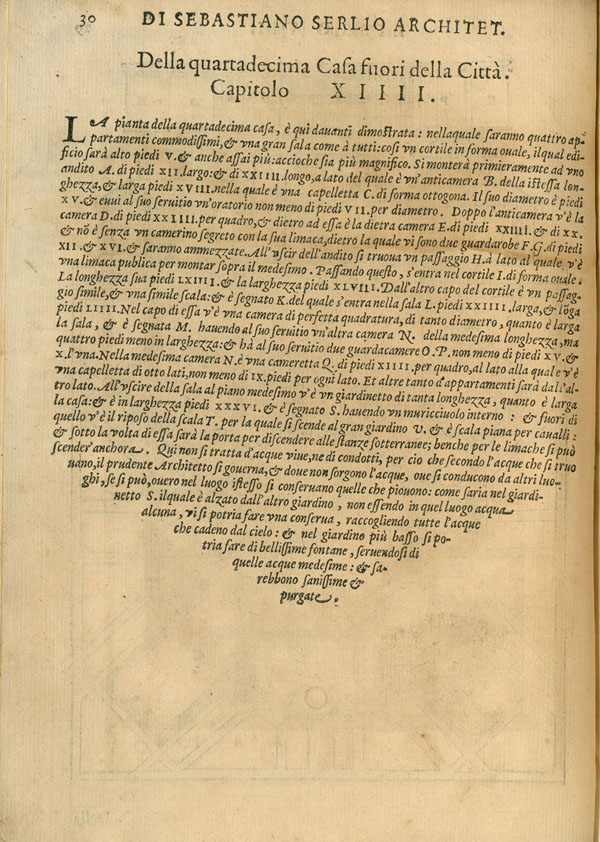 30
DI SEBASTIANO SERLIO ARCHITET.
Della quartadecima Casa fuori della Città.
Capitolo XIIII.
LA pianta della quartadecima casa, è qui dauanti dimostrata: nellaquale saranno quattro ap
partamenti commodissimi, & vna gran sala come à tutti: cosi vn cortile in forma ouale, ilqual edi-
ficio sarà alto piedi V. & anche assai più: accioche sia più magnifico. Si monterà primieramente ad vno
andito A. di piedi XII. largo: & di XXIIII. longo, a lato del quale è vn'anticamera B. della istessa lon-
ghezza, & larga piedi XVIII. nella quale è vna capelletta C. di forma ottogona. Il suo diametro è piedi
XV. & euui al suo seruitio vn'oratorio non meno di piedi VII. per diametro. Doppo l'anticamera v'è la
camera D. di piedi XXIIII. per quadro, & dietro ad essa è la dietra camera E. di piedi XXIIII. & di XX.
& nõ è senza vn camerino segreto con la sua limaca, dietro la quale vi sono due guardarobe F. G. di piedi
XII. & XVI. & saranno ammezzate. All'vscir dell'andito si truoua vn passaggio H. à lato al quale v'è
vna limaca publica per montar sopra il medesimo. Passando questo, s'entra nel cortile I. di forma ouale.
La longhezza sua piedi LXIIII. & la larghezza piedi XLVIII. Dall'altro capo del cortile è vn passag-
gio simile, & vna simile scala: & è segnato K. del quale s'entra nella sala L. piedi XXIIII. larga, & lõga
piedi LIIII. Nel capo di essa v'è vna camera di perfetta quadratura, di tanto diametro, quanto è larga
la sala, & è segnata M. hauendo al suo seruitio vn'altra camera N. della medesima longhezza, ma
quattro piedi meno in larghezza: & hà al suo seruitio due guardacamere O. P. non meno di piedi XV. &
X. l'vna. Nella medesima camera N. è vna cameretta Q. di piedi XIIII. per quadro, al lato alla quale v'è
vna capelletta di otto lati, non meno di IX. piedi per ogni lato. Et altre tanto d'appartamenti sarà dall'al-
tro lato. All'vscire della sala al piano medesimo v'è vn giardinetto di tanta longhezza, quanto è larga
la casa: & è in larghezza piedi XXXVI. & è segnato S. hauendo vn muricciuolo interno: & fuori di
quello v'è il riposo della scala T. per la quale si scende al gran giardino V. & è scala piana per caualli:
& sotto la volta di essa sarà la porta per discendere alle stanze sotterranee; benche per le limache si può
scender'anchora. Qui non si tratta d'acque viue, ne di condotti, per cio che secondo l'acque che si truo
uano, il prudente Architetto si gouerna, & doue non sorgono l'acque, oue si conducono da altri luo-
ghi, se si può, ouero nel luogo istesso si conseruano quelle che piouono: come saria nel giardi-
netto S. ilquale è alzato dall'altro giardino, non essendo in quel luogo acqua
alcuna, vi si potria fare vna conserua, raccogliendo tutte l'acque
che cadeno dal cielo: & nel giardino più basso si po-
tria fare di bellissime fontane, seruendosi di
quelle acque medesime: & sa-
rebbono sanissime &
purgate.